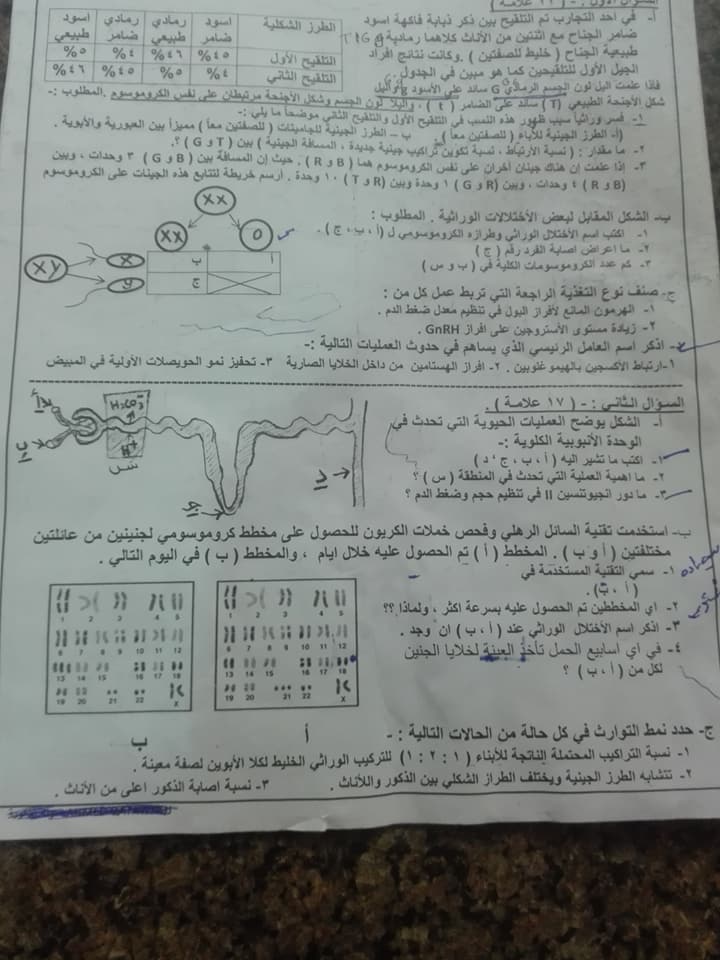 السؤال الأول : - ( ٢٢ علامة )
أ- في احد التجارب تم التلقيح بين ذكر ذبابة فاكهة اسود
ضامر الجناح مع اثنتين من الأناث كلاهما رمادية
طبيعية الجناح ( خليط للصفتين ) .وكانت نتائج افراد
الجيل الأول للتلقيحين كما هو مبين في الجدول.
الطرز الشكلية | اسود ضامر | رمادي طبيعي | رمادي ضامر | اسود طبيعي
التلقيح الأول | ٤٥% | ٤٦% | ٤% | ٥%
التلقيح الثاني | ٤% | ٥% | ٤٥% | ٤٦%
فاذا علمت اليل لون الجسم الرمادي G سائد على الأسود g واليل
شكل الأجنحة الطبيعي (T) سائد على الضامر ( t ) ، واليلا لون الجسم وشكل الأجنحة مرتبطان على نفس الكروموسوم .المطلوب :-
١- فسر وراثياً سبب ظهور هذه النسب في التلقيح الأول والتلقيح الثاني موضحاً ما يلي:-
(أ- الطرز الجينية للأباء ( للصفتين معاً ) . ب – الطرز الجينية للجاميتات ( للصفتين معاً ) مميزاً بين العبورية والأبوية .
٢- ما مقدار : ( نسبة الأرتباط ، نسبة تكوين تراكيب جينية جديدة ، المسافة الجينية ) بين ( T و G ) ؟.
٣- إذا علمت إن هناك جينان أخران على نفس الكروموسوم هما ( B و R ) . حيث إن المسافة بين ( B و G ) ٣ وحدات ، وبين
(B و R ) ٤ وحدات ، وبين (R و G ) ١ وحدة وبين (R و T ) ١٠ وحدة . أرسم خريطة لتتابع هذه الجينات على الكروموسوم
ب- الشكل المقابل لبعض الأختلالات الوراثية . المطلوب :
١- اكتب اسم الأختلال الوراثي وطرازه الكروموسومي ل ( أ ، ب ، ج ) .
٢- ما اعراض اصابة الفرد رقم ( ج )
٣- كم عدد الكروموسومات الكلية في ( ب و س )
XX
XX
O
س
XY
X
y
ب
أ
ج
ج- صنف نوع التغذية الراجعة التي تربط عمل كل من :
١- الهرمون المانع لأفراز البول في تنظيم معدل ضغط الدم .
٢- زيادة مستوى الأستروجين على افراز GnRH .
د- اذكر اسم العامل الرئيسي الذي يساهم في حدوث العمليات التالية :-
١-ارتباط الأكسجين بالهيموغلوبين . ٢- افراز الهستامين من داخل الخلايا الصارية ٣- تحفيز نمو الحويصلات الأولية في المبيض
السؤال الثاني : - ( ١٧ علامة ) .
أ- الشكل يوضح العمليات الحيوية التي تحدث في
الوحدة الأنبوبية الكلوية :-
١- اكتب ما تشير اليه ( أ ، ب ، ج ، د )
٢- ما اهمية العملية التي تحدث في المنطقة ( س ) ؟
٣- ما دور انجيوتنسين II في تنظيم حجم وضغط الدم ؟
أ
ب
س
ج
د
ب- استخدمت تقنية السائل الرهلي وفحص خملات الكريون للحصول على مخطط كروموسومي لجنينين من عائلتين
مختلفتين ( أ و ب ) . المخطط ( أ ) تم الحصول عليه خلال ايام ، والمخطط ( ب ) في اليوم التالي .
١- سمي التقنية المستخدمة في
( أ ، ب ) .
٢- اي المخططين تم الحصول عليه بسرعة اكثر ، ولماذا ؟؟
٣- اذكر اسم الأختلال الوراثي عند ( أ ، ب ) ان وجد .
٤- في اي اسابيع الحمل تأخذ العينة لخلايا الجنين
لكل من ( أ ، ب ) ؟
1 2 3 4 5
6 7 8 9 10 11 12
13 14 15 16 17 18
19 20 21 22 X
1 2 3 4 5
6 7 8 9 10 11 12
13 14 15 16 17 18
19 20 21 22 X
أ
ب
ج- حدد نمط التوارث في كل حالة من الحالات التالية : -
١- نسبة التراكيب المحتملة الناتجة للأبناء ( ١ : ٢ : ١ ) للتركيب الوراثي الخليط لكلا الأبوين لصفة معينة .
٢- تتشابه الطرز الجينية ويختلف الطراز الشكلي بين الذكور واللأناث . ٣- نسبة اصابة الذكور اعلى من الأناث .